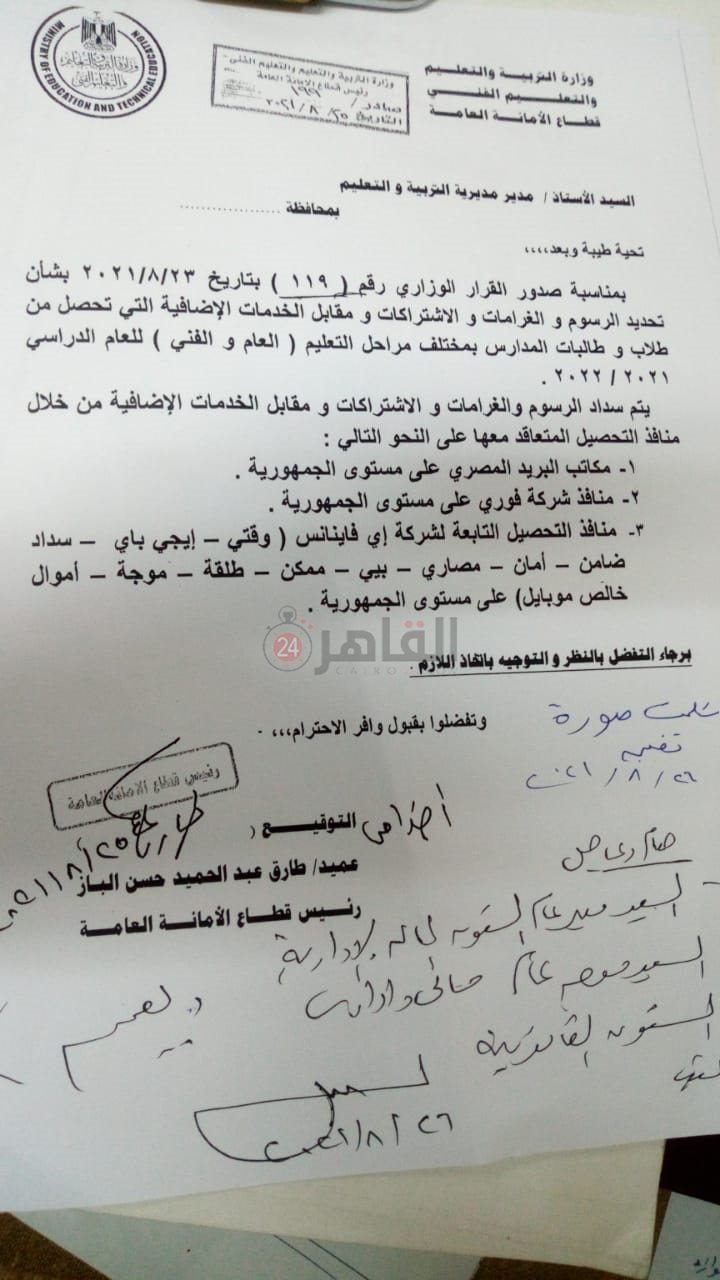 وزارة التربية والتعليم
والتعليم الفني
قطاع الأمانة العامة
وزارة التربية والتعليم والتعليم الفنى
رئيس قطاع الامانة العامة
صادر / ١٩٩
التاريخ ٢٥ / ٨ / ٢٠٢١
MINISTRY OF EDUCATION AND TECHNICAL EDUCATION
السيد الأستاذ / مدير مديرية التربية و التعليم
بمحافظة ...................
تحية طيبة وبعد،،،،
بمناسبة صدور القرار الوزاري رقم ( ١١٩ ) بتاريخ ٢٠٢١/٨/٢٣ بشأن
تحديد الرسوم و الغرامات و الاشتراكات و مقابل الخدمات الإضافية التي تحصل من
طلاب و طالبات المدارس بمختلف مراحل التعليم ( العام و الفني ) للعام الدراسي
٢٠٢١ / ٢٠٢٢ .
يتم سداد الرسوم والغرامات و الاشتراكات و مقابل الخدمات الإضافية من خلال
منافذ التحصيل المتعاقد معها على النحو التالي :
١- مكاتب البريد المصري على مستوى الجمهورية .
٢- منافذ شركة فوري على مستوى الجمهورية .
٣- منافذ التحصيل التابعة لشركة إي فاينانس ( وقتي – إيجي باي – سداد
ضامن – أمان – مصاري – بيي – ممكن – طلقة – موجة – أموال
خالص موبايل) على مستوى الجمهورية .
القاهرة 24
CAIRO
برجاء التفضل بالنظر و التوجيه باتخاذ اللازم .
وتفضلوا بقبول وافر الاحترام،،، -
صورة
٢٦ / ٨ / ٢٠٢١
رئيس قطاع الامانة العامة
التوقيع (
عميد/ طارق عبد الحميد حسن الباز
رئيس قطاع الأمانة العامة
السيد مدير عام الشئون المالية والإدارية
الشئون القانونية
٢٦ / ٨ / ٢٠٢١